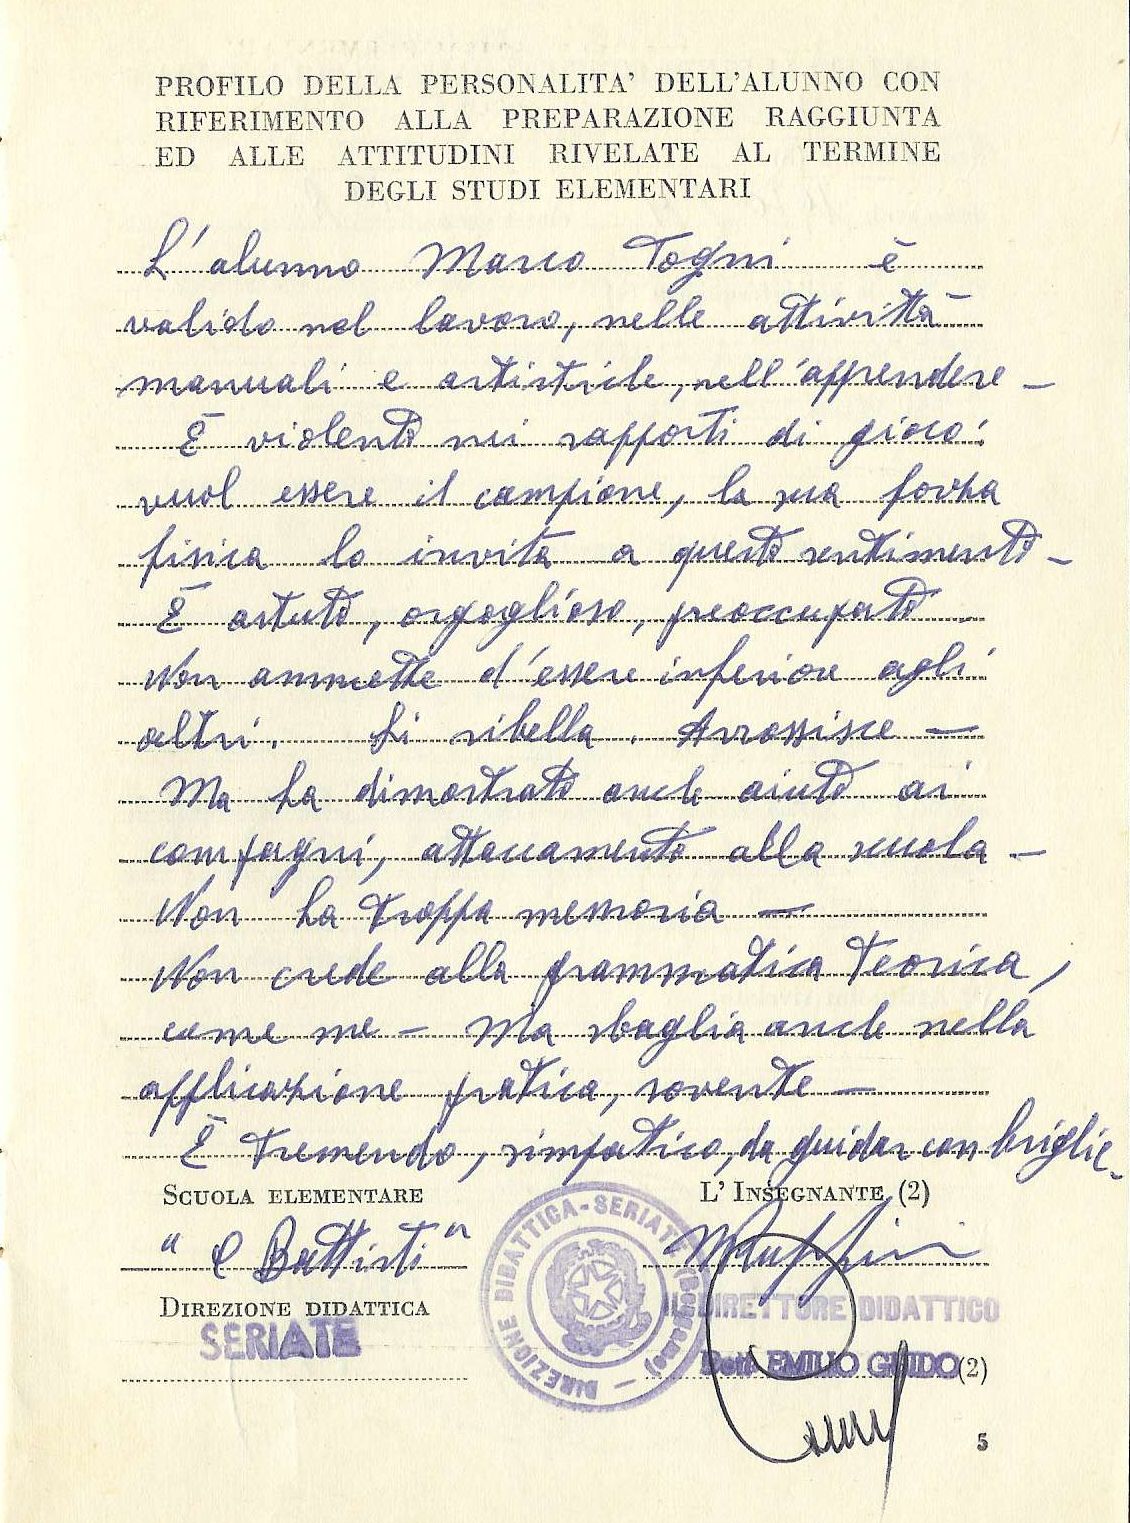 PROFILO DELLA PERSONALITA' DELL'ALUNNO CON
RIFERIMENTO ALLA PREPARAZIONE RAGGIUNTA
ED ALLE ATTITUDINI RIVELATE AL TERMINE
DEGLI STUDI ELEMENTARI
L'alunno Marco Togni è
valido nel lavoro, nelle attività
manuali e artistiche, nell'apprendere –
È violento nei rapporti di gioco:
vuol essere il campione, la sua forza
fisica lo invita a questo sentimento –
È astuto, orgoglioso, preoccupato
Non ammette d'essere inferiore agli
altri. Si ribella. Arrossisce –
Ma ha dimostrato anche aiuto ai
compagni, attaccamento alla scuola –
Non ha troppa memoria –
Non crede alla grammatica teorica,
come me – Ma sbaglia anche nella
applicazione pratica, sovente –
È tremendo, simpatico, da guidar con briglie –
SCUOLA ELEMENTARE
L'INSEGNANTE (2)
"C Battisti"
DIREZIONE DIDATTICA
SERIATE
DIREZIONE DIDATTICA - SERIATE (Bergamo) -
IL DIRETTORE DIDATTICO
Dott. EMILIO GUIDO (2)
5